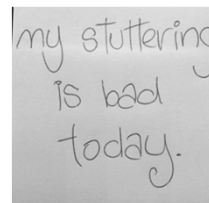 my stuttering
is bad
today.